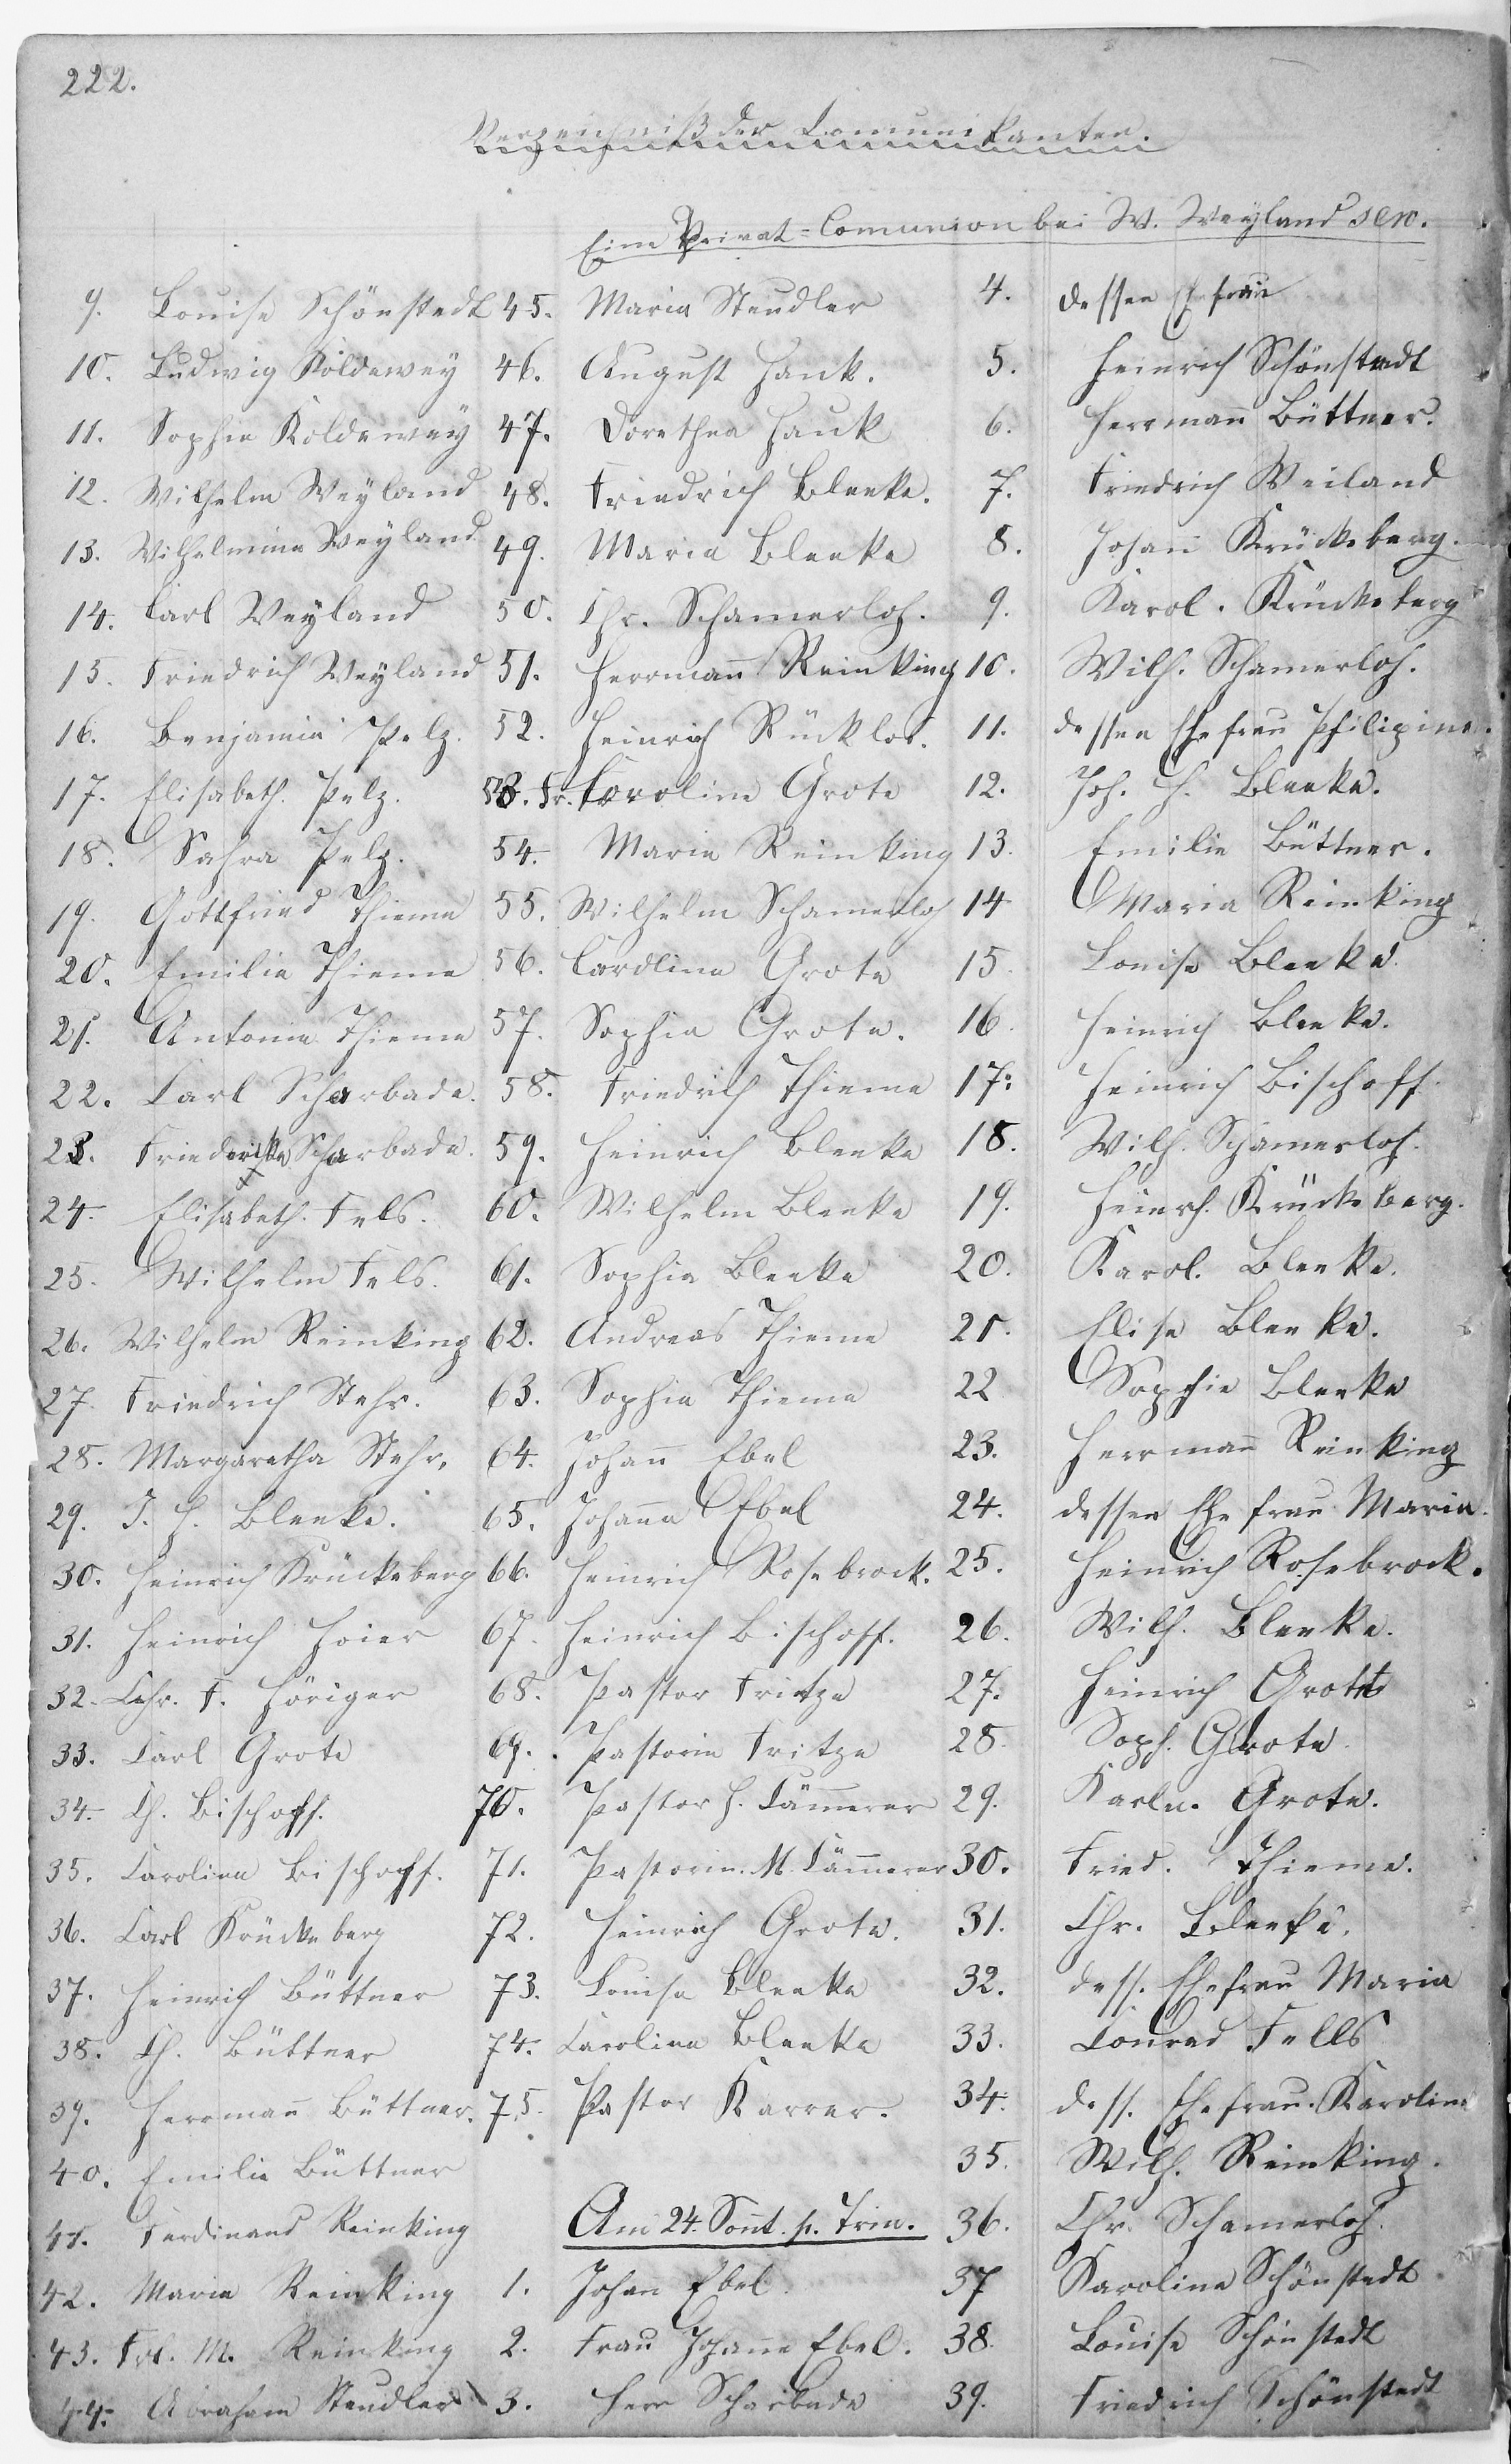 222.
Verzeichniß der Comunikanten.
Eine Privat-Comunion bei W. Weyland sen.
9. Louise Schönstedt
10. Ludwig Koldewey
11. Sophie Koldewey
12. Wilhelm Weyland
13. Wilhelmine Weyland
14. Carl Weyland
15. Friedrich Weyland
16. Benjamin Pelz.
17. Elisabeth. Pelz.
18. Sahra Pelz.
19. Gottfried Thieme
20. Emilie Thieme
21. Antonie Thieme
22. Carl Scharbade.
23. Friedericke Scharbade.
24. Elisabeth. Fels.
25. Wilhelm Fels.
26. Wilhelm Reinking
27. Friedrich Stehr.
28. Margaretha Stehr,
29. J. H. Bleeke.
30. Heinrich Krückeberg
31. Heinrich Hoier
32. Chr. F. Höriger
33. Carl Grote
34. Ch. Bischoff.
35. Carolina Bischoff.
36. Carl Krückeberg
37. Heinrich Büttner
38. Ch. Büttner
39. Herrmann Büttner.
40. Emilie Büttner
41. Ferdinand Reinking
42. Maria Reinking
43. Frl. M. Reinking
44. Abraham Steudler
45. Maria Steudler
46. August Hauk.
47. Dorethea Hauk
48. Friedrich Bleeke.
49. Maria Bleeke
50. Chr. Schamerloh.
51. Herrmann Reinking
52. Heinrich Rücklos.
53. Fr. Caroline Grote
54. Maria Reinking
55. Wilhelm Schamerloh
56. Carolina Grote
57. Sophia Grote.
58. Friedrich Thieme
59. Heinrich Bleeke
60. Wilhelm Bleeke
61. Sophia Bleeke
62. Andreas Thieme
63. Sophia Thieme
64. Johann Ebel
65. Johanna Ebel
66. Heinrich Rosebrock.
67. Heinrich Bischoff.
68. Pastor Fritze
69. Pastorin Fritze
70. Pastor H. Cämmerer
71. Pastorin. M. Cämmerer
72. Heinrich Grote.
73. Louisa Bleeke
74. Carolina Bleeke
75. Pastor Karrer.
Am 24. Sont. p. Trin.
1. Johan Ebel.
2. Frau Johanna Ebel.
3. Herr Scharbade
4. dessen Ehefrau
5. Heinrich Schönstedt
6. Herrmann Büttner.
7. Friedrich Weiland
8. Johann Krückeberg.
9. Karol. Krückeberg
10. Wilh. Schamerloh.
11. dessen Ehefrau Philipine.
12. Joh. H. Bleeke.
13. Emilie Büttner.
14 Maria Reinking
15. Louise Bleeke.
16. Heinrich Bleeke.
17. Heinrich Bischoff.
18. Wilh. Schamerloh.
19. Heinrch. Krückeberg.
20. Karol. Bleeke.
21. Elise Bleeke.
22 Sophie Bleeke
23. Herrmann Reinking
24. dessen Ehefrau Maria.
25. Heinrich Rosebrock.
26. Wilh. Bleeke.
27. Heinrich Grote
28. Soph. Grote.
29. Karln. Grote.
30. Fried. Thieme.
31. Chr. Bleeke.
32. dess. Ehefrau Maria
33. Conrad Fells
34. dess. Ehefrau. Karoline
35. Wilh. Reinking.
36. Chr. Schamerloh.
37 Karoline Schönstedt
38. Louise Schönstedt
39. Friedrich Schönstedt